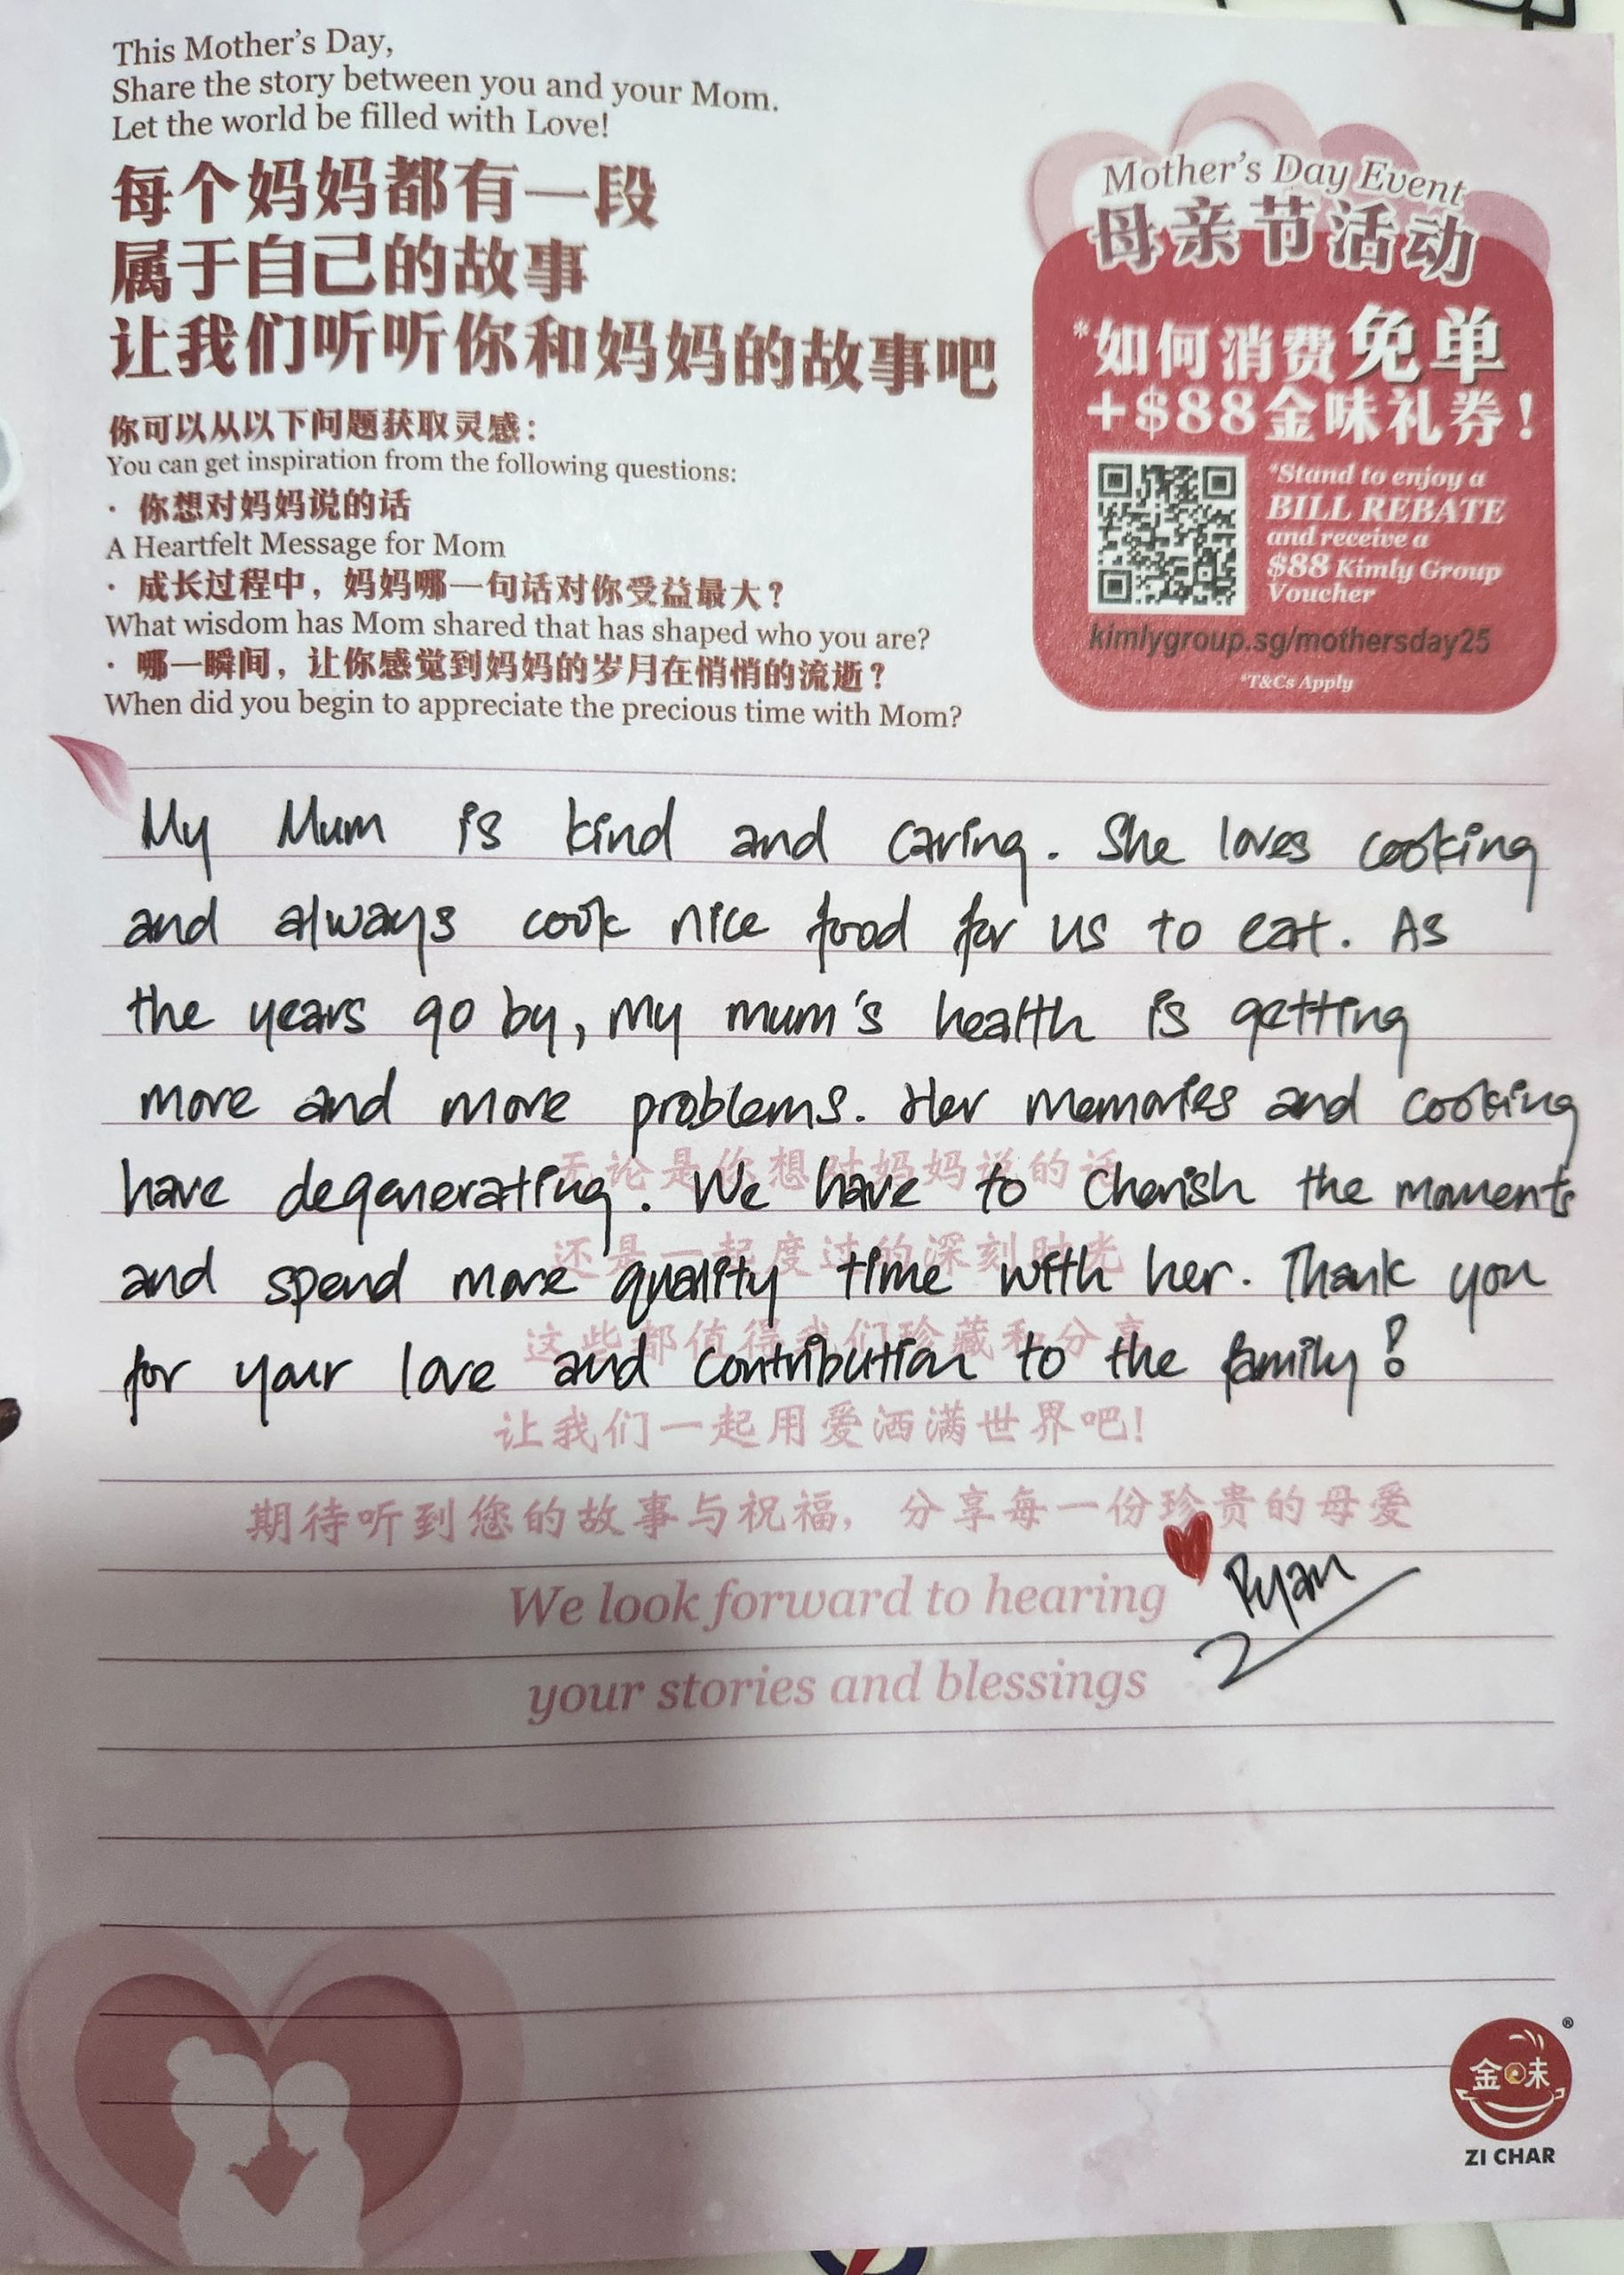 This Mother's Day,
Share the story between you and your Mom.
Let the world be filled with Love!
每个妈妈都有一段
属于自己的故事
让我们听听你和妈妈的故事吧
你可以从以下问题获取灵感：
You can get inspiration from the following questions:
· 你想对妈妈说的话
A Heartfelt Message for Mom
· 成长过程中，妈妈哪一句话对你受益最大？
What wisdom has Mom shared that has shaped who you are?
· 哪一瞬间，让你感觉到妈妈的岁月在悄悄的流逝？
When did you begin to appreciate the precious time with Mom?
Mother's Day Event
母亲节活动
*如何消费免单
+$88金味礼券！
*Stand to enjoy a
BILL REBATE
and receive a
$88 Kimly Group
Voucher
kimlygroup.sg/mothersday25
*T&Cs Apply
My Mum is kind and caring. She loves cooking
and always cook nice food for us to eat. As
the years go by, my mum's health is getting
more and more problems. Her memories and cooking
have degenerating. We have to cherish the moments
and spend more quality time with her. Thank you
for your love and contribution to the family!
无论是你想对妈妈说的话
还是一起度过的深刻时光
这些都值得我们珍藏和分享
让我们一起用爱洒满世界吧!
期待听到您的故事与祝福，分享每一份珍贵的母爱
We look forward to hearing
your stories and blessings
Ryan
金味
®
ZI CHAR